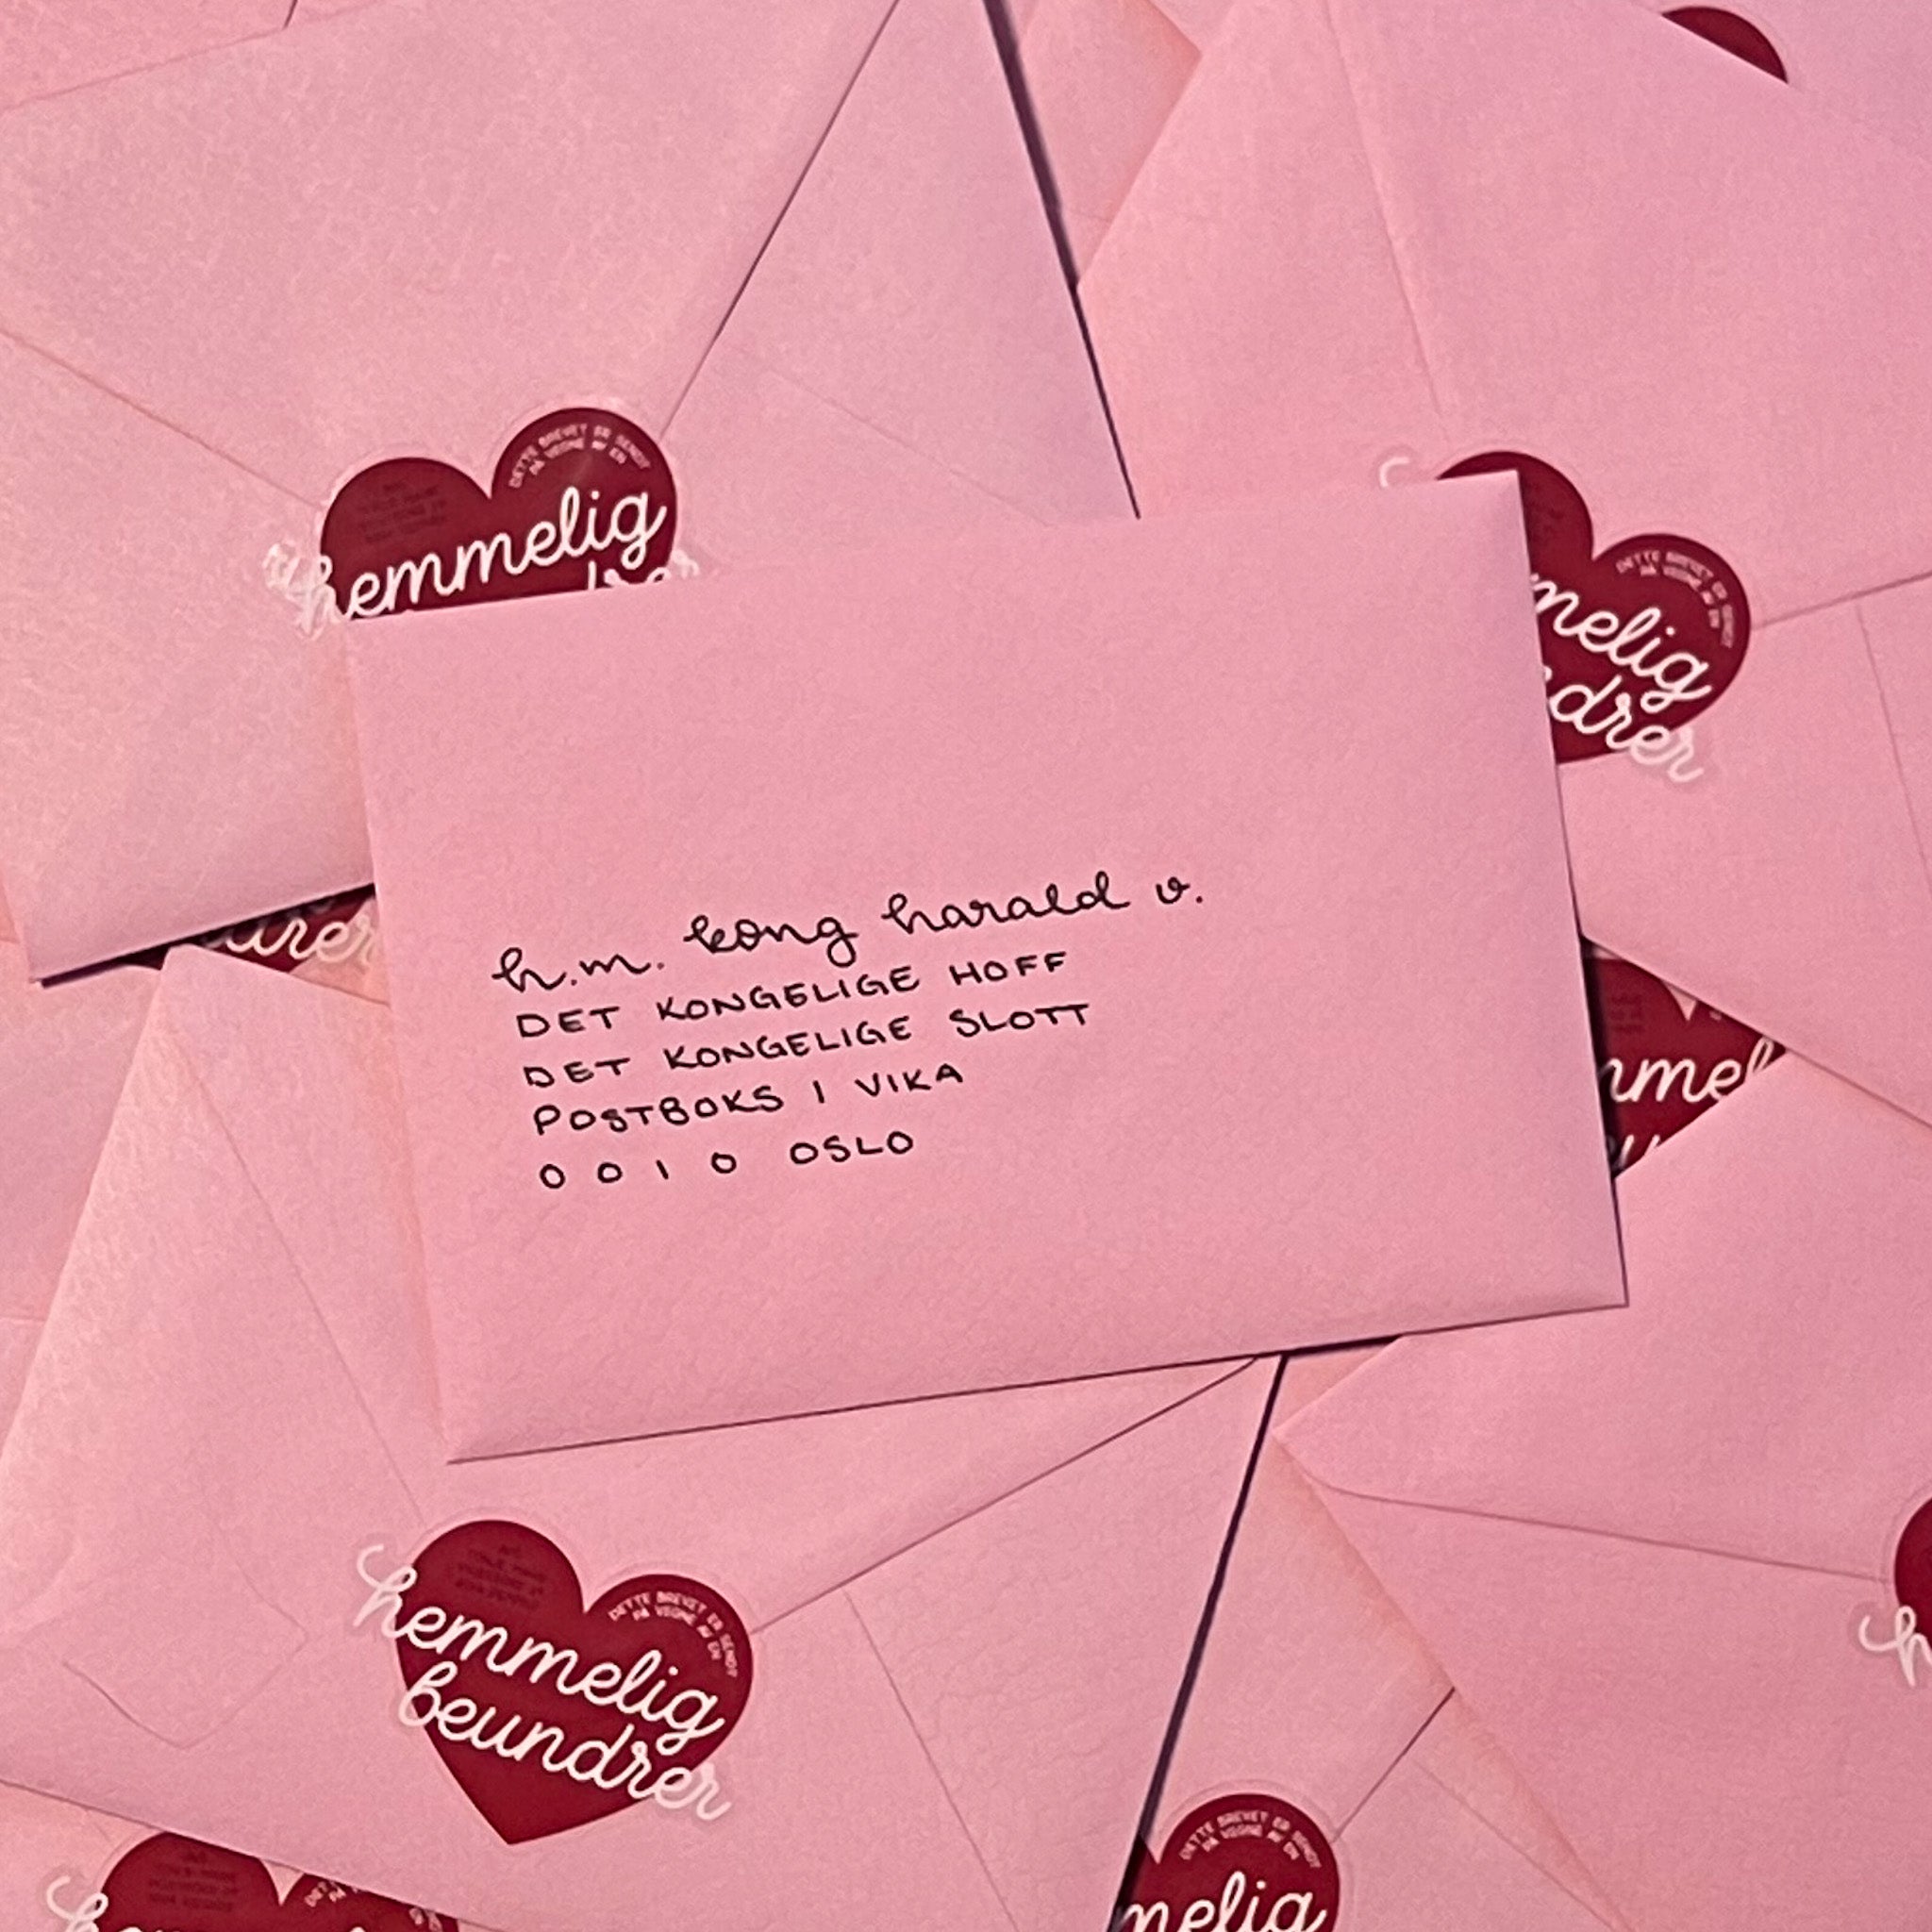 DETTE BREVET ER SENDT
PÅ VEGNE AV EN
hemmelig
DETTE BREVET ER SENDT
PÅ VEGNE AV EN
melig
drer
h.m. kong harald v.
DET KONGELIGE HOFF
DET KONGELIGE SLOTT
POSTBOKS 1 VIKA
0010 OSLO
drer
mmel
DETTE BREVET ER SENDT
PÅ VEGNE AV EN
hemmelig
beundrer
h
DETTE BREVET ER SENDT
PÅ VEGNE AV EN
melig